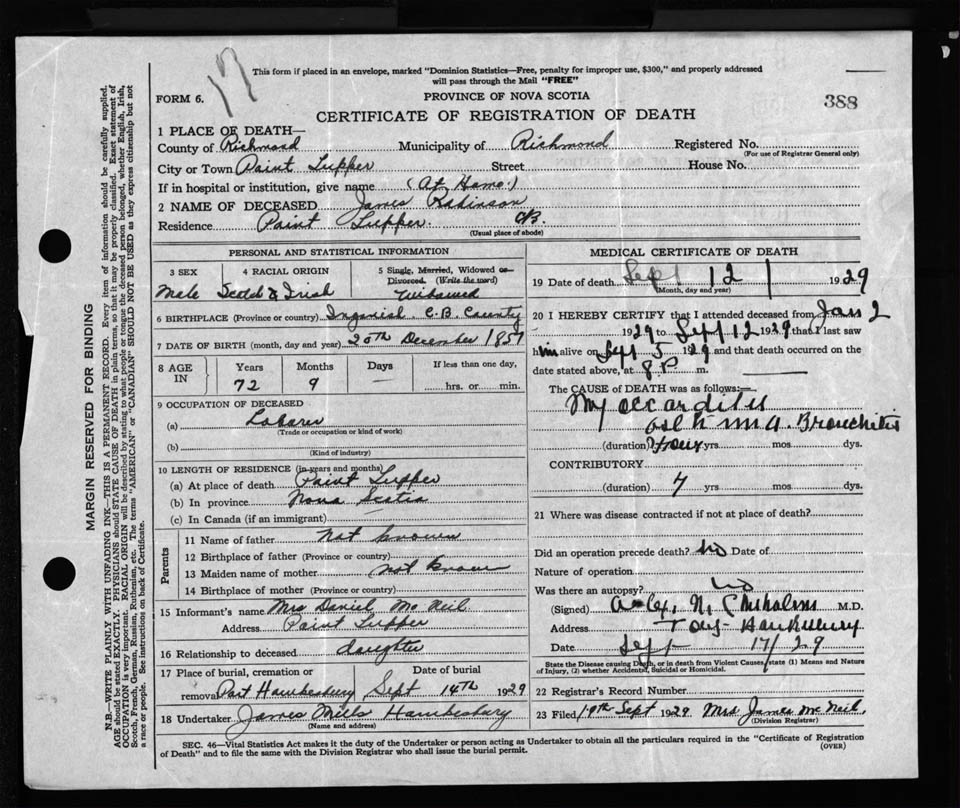 17
This form if placed in an envelope, marked "Dominion Statistics—Free, penalty for improper use, $300," and properly addressed
will pass through the Mail "FREE"
FORM 6.
PROVINCE OF NOVA SCOTIA
388
CERTIFICATE OF REGISTRATION OF DEATH
1 PLACE OF DEATH—
County of Richmond Municipality of Richmond Registered No.
(For use of Registrar General only)
City or Town Point Tupper Street House No.
If in hospital or institution, give name (At Home.)
2 NAME OF DECEASED James Robinson
Residence Point Tupper. CB.
(Usual place of abode)
PERSONAL AND STATISTICAL INFORMATION
3 SEX
Male
4 RACIAL ORIGIN
Scotch & Irish
5 Single, Married, Widowed or
Divorced. (Write the word)
Widowed
6 BIRTHPLACE (Province or country) Ingonish C.B. County
7 DATE OF BIRTH (month, day and year) 20th December 1857
8 AGE IN
Years
72
Months
9
Days
—
If less than one day,
hrs. or min.
9 OCCUPATION OF DECEASED
(a) Laborer
(Trade or occupation or kind of work)
(b)
(Kind of industry)
10 LENGTH OF RESIDENCE (in years and months)
(a) At place of death Point Tupper
(b) In province Nova Scotia
(c) In Canada (if an immigrant)
Parents
11 Name of father not known
12 Birthplace of father (Province or country)
13 Maiden name of mother not known
14 Birthplace of mother (Province or country)
15 Informant's name Mrs Daniel Mc Neil
Address Point Tupper
16 Relationship to deceased daughter
17 Place of burial, cremation or Date of burial
removal Port Hawkesbury Sept 14th 1929
18 Undertaker James Mills Hawkesbury
(Name and address)
MEDICAL CERTIFICATE OF DEATH
19 Date of death Sept 12 1929
(Month, day and year)
20 I HEREBY CERTIFY that I attended deceased from Jan 2
1929 to Sept 12 1929 that I last saw
him alive on Sept 5 1929 and that death occurred on the
date stated above, at 8 P m.
The CAUSE of DEATH was as follows:—
Myocarditis
asthma Bronchitis
(duration) Four yrs. mos. dys.
CONTRIBUTORY
(duration) 4 yrs mos dys.
21 Where was disease contracted if not at place of death?
Did an operation precede death? No Date of
Nature of operation
Was there an autopsy? No
(Signed) Alex. N. Chisholm M.D.
Address Port Hawkesbury
Date Sept 17/29
State the Disease causing Death, or in death from Violent Causes, state (1) Means and Nature
of Injury, (2) whether Accidental, Suicidal or Homicidal.
22 Registrar's Record Number
23 Filed 19th Sept 1929 Mrs James Mc Neil
(Division Registrar)
SEC. 46—Vital Statistics Act makes it the duty of the Undertaker or person acting as Undertaker to obtain all the particulars required in the "Certificate of Registration
of Death" and to file the same with the Division Registrar who shall issue the burial permit.
(OVER)
MARGIN RESERVED FOR BINDING
N.B.—WRITE PLAINLY WITH UNFADING INK—THIS IS A PERMANENT RECORD. Every item of information should be carefully supplied.
AGE should be stated EXACTLY. PHYSICIANS should STATE CAUSE OF DEATH in plain terms, so that it may be properly classified. Exact statement of
OCCUPATION is very important. RACIAL ORIGIN will be described by stating to what people or tongue the deceased person belonged, whether English, Irish,
Scotch, French, German, Russian, Ruthenian, etc. The terms "AMERICAN" or "CANADIAN" SHOULD NOT BE USED as they express citizenship but not
a race or people. See instructions on back of Certificate.